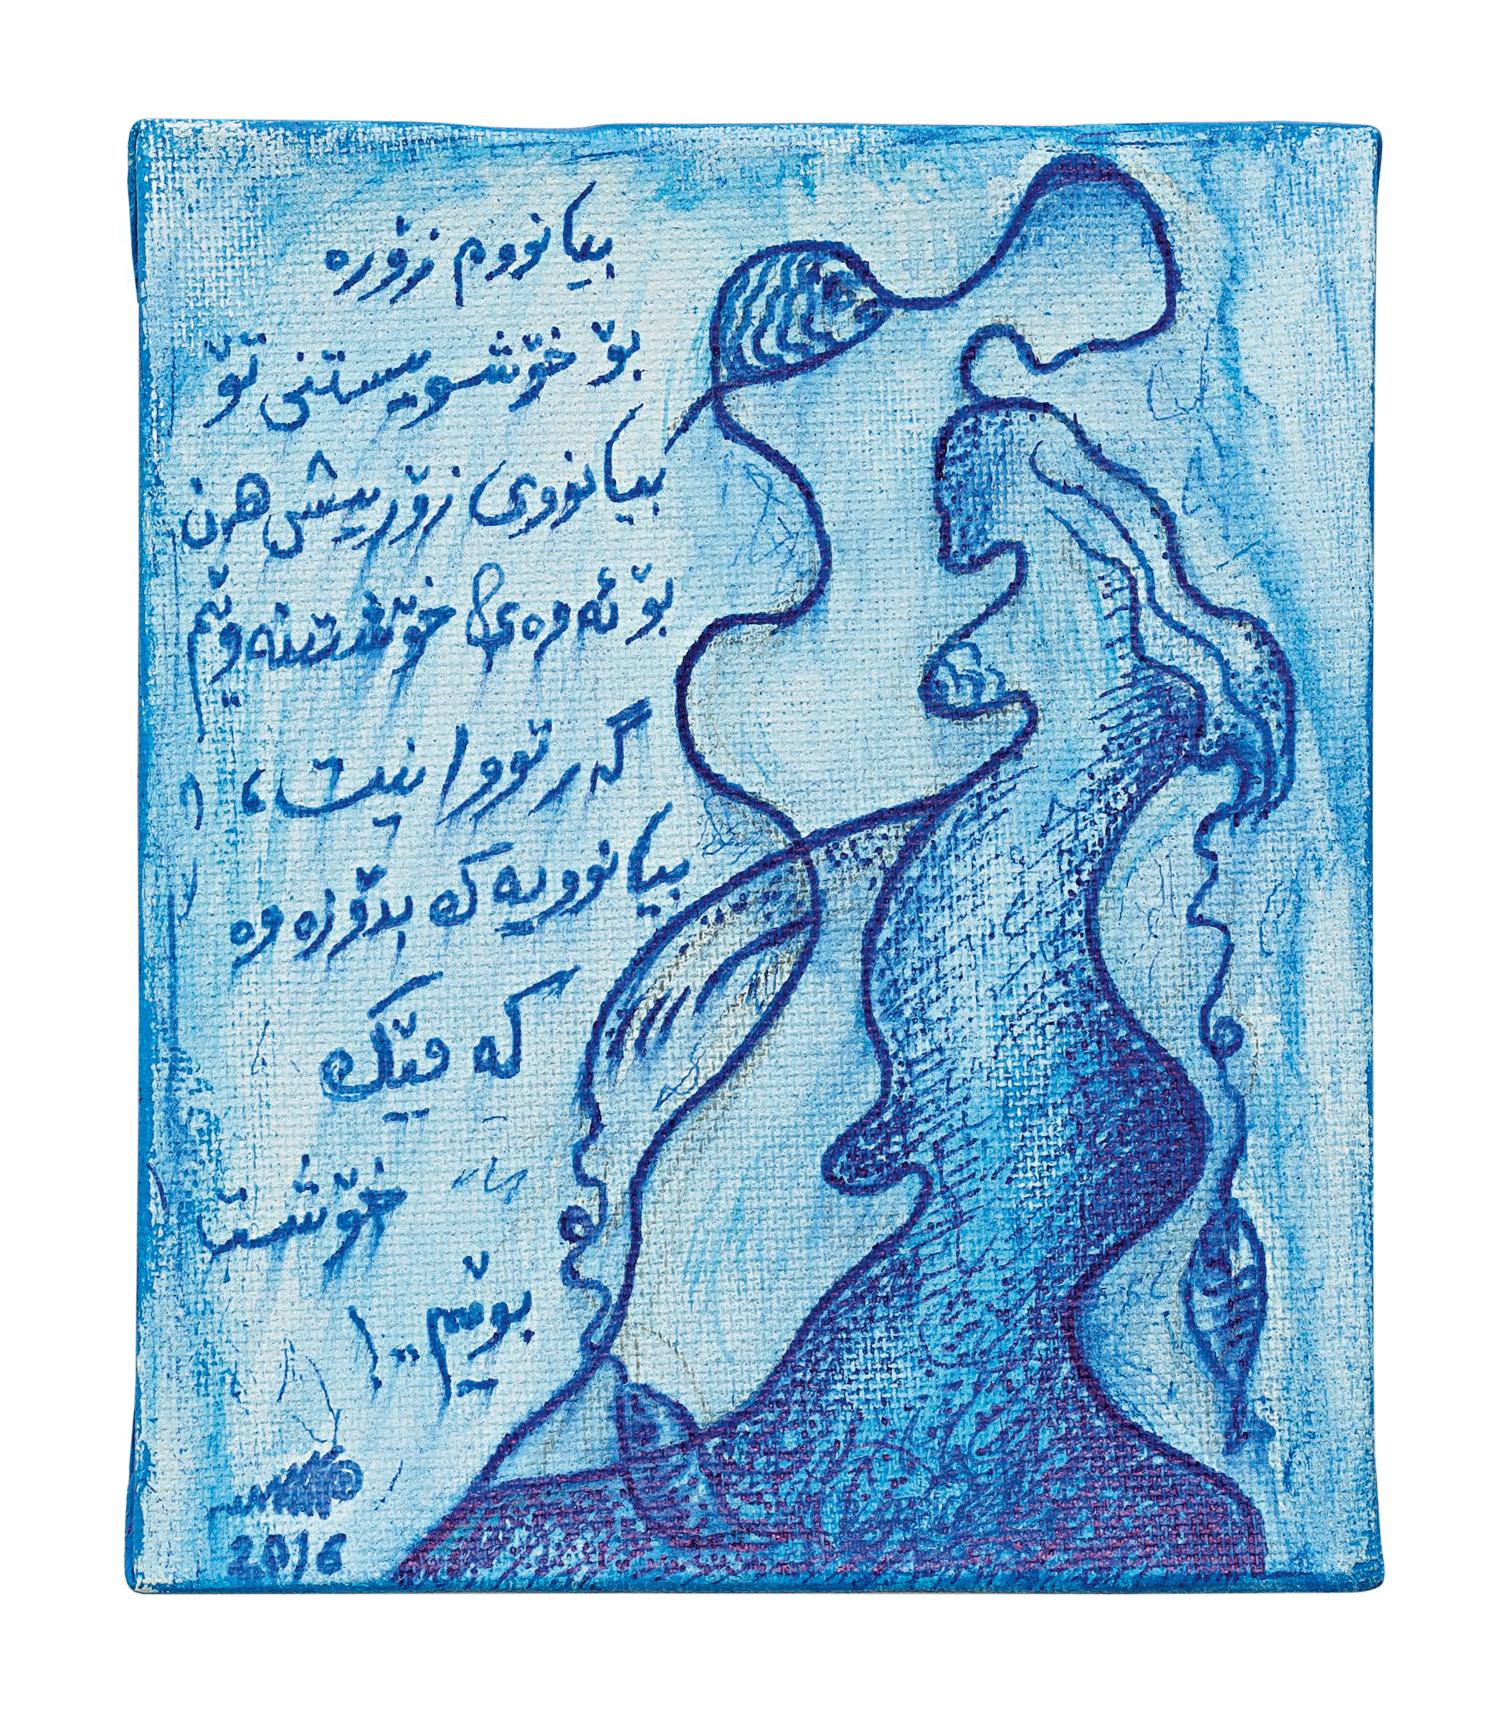 بیانووم زۆرە
بۆ خۆشویستنی تۆ
بیانووی زۆریش هەن
بۆ ئەوەی خۆشت نەوێم
گەر تووانیت،
بیانوویەک بدۆزەوە
کە مێک
خۆشت
بوێم..!
2016